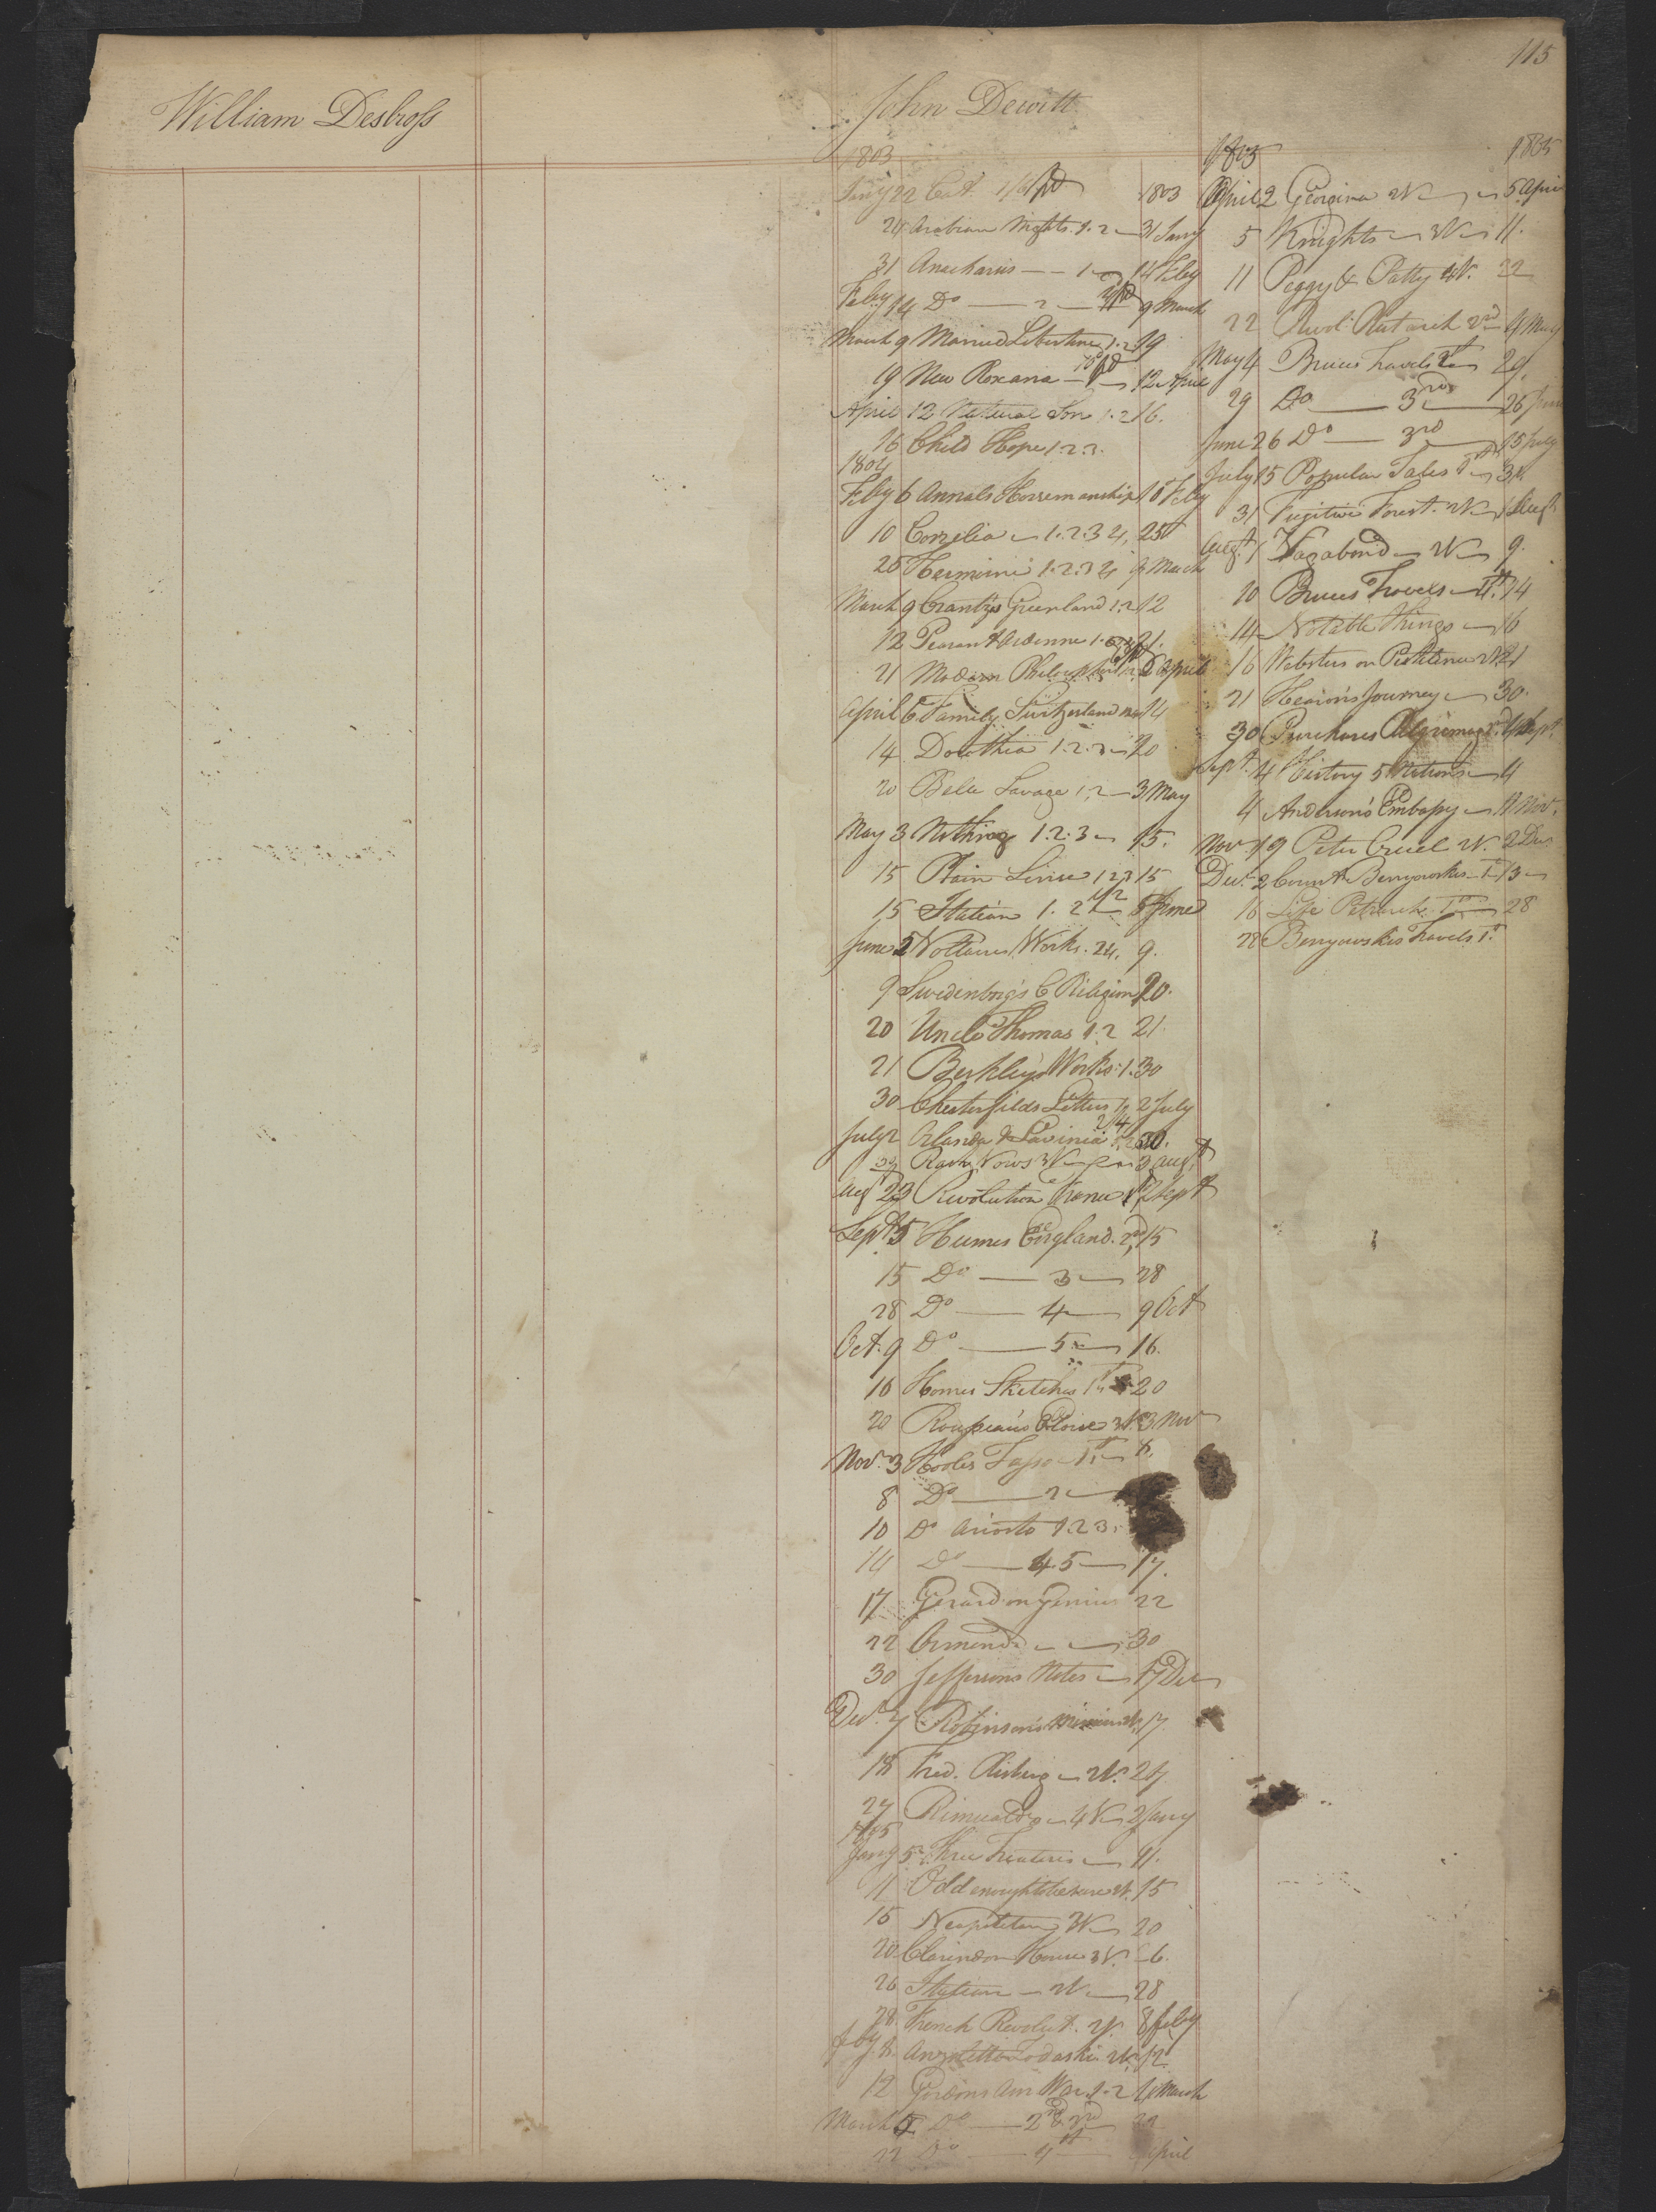 115
William Desbross
John Dewitt
1803
Jany 22 Cat. 1/6 pd 1803
24 Arabian Nights 1.2 31 Jany
31 Anacharsis 1 14 Feby
Feby 14 Do 2 9 March
March 9 Married Libertine 1.2 19
19 New Roxana 12 April
April 12 Natural Son 1.2 16.
16 Child Hope 1.2.3.
1804
Feby 6 Annals Horsemanship 10 Feby
10 Cornelia 1.2.3 4, 25
25 Hermione 1.2.3 4 9 March
March 9 Crantz's Greenland 1.2 12
12 Peasant Ardenne 21.
21 Modern Philosophers 6 April
April 6 Family Switzerland 14
14 Dorothea 1.2.3 20
20 Belle Savage 1.2 3 May
May 3 Nothing 1.2.3 15.
15 Plain Sense 1 2 3 15
15 Italian 1. 2 5 June
June 5 Voltaires Works. 24. 9.
9 Swedenborg's C Religion 20.
20 Uncle Thomas 1.2 21.
21 Berkley's Works 1. 30
30 Chesterfields Letters 2 July
July 2 Orlando & Lavinia 30.
Rash Vows 3V 3 Augt
Augt 23 Revolution France 1st 2 Sept
Sept 5 Humes England. 2nd 15
15 Do 3 28
28 Do 4 9 Oct
Oct. 9 Do 5 16.
16 Homes Sketches 1st 20
20 Rousseau's Eloise 3V. 3 Nov
Nov. 3 Hooles Tasso 1st 8.
8 Do 2
10 Do Ariosto 1.2 3.
14 Do 4.5 17.
17 Gerard on Genius 22
22 Ormond 30
30 Jeffersons Notes 17 Dec
Dec. 7 Robinson's 17.
18 Fred. Risberg 2V. 27
27 Rimualdo 4V 2 Jany
1805
Jany 5 Three Treatises 11.
11 Odd enough to be sure 2V. 15
15 Neapolitan 3V 20
20 Clarendon House 3V. 26.
26 Italian 2V 28
28 French Revolut. 2V. 8 Feby
Feby 8 2V. 12
12 Gordons Am War 1.2 March
March Do 2nd & 3rd 22
22 Do 4th April
1805 1805
April 2 Georgina 2V 5 April
5 Knights 3V 11.
11 Peggy & Patty 4V. 22
22 Revol. Plutarch 2nd 4 May
May 4 Bruces Travels 29.
29 Do 3rd 26 June
June 26 Do 3rd 15 July
July 15 Popular Tales 1st 31.
31 Fugitive Forest. 2V 1 Augt
Augt. 1 Vagabond 2V 9.
10 Bruces Travels 4th. 14
14 Notable Things 16
16 Websters on Pestilence 2V. 21
21 Hearn's Journey 30.
30 Purchases Pilgrimage. 4 Sept.
Sept. 4 History 5 Nations 4
4 Anderson's Embassy 11 Nov.
Nov 19 Peter Cruel 2V. 2 Dec
Dec. 2 Count Benyowskis 1st 13
16 Life Petrarch 1st 28
28 Benyowskis Travels 1st